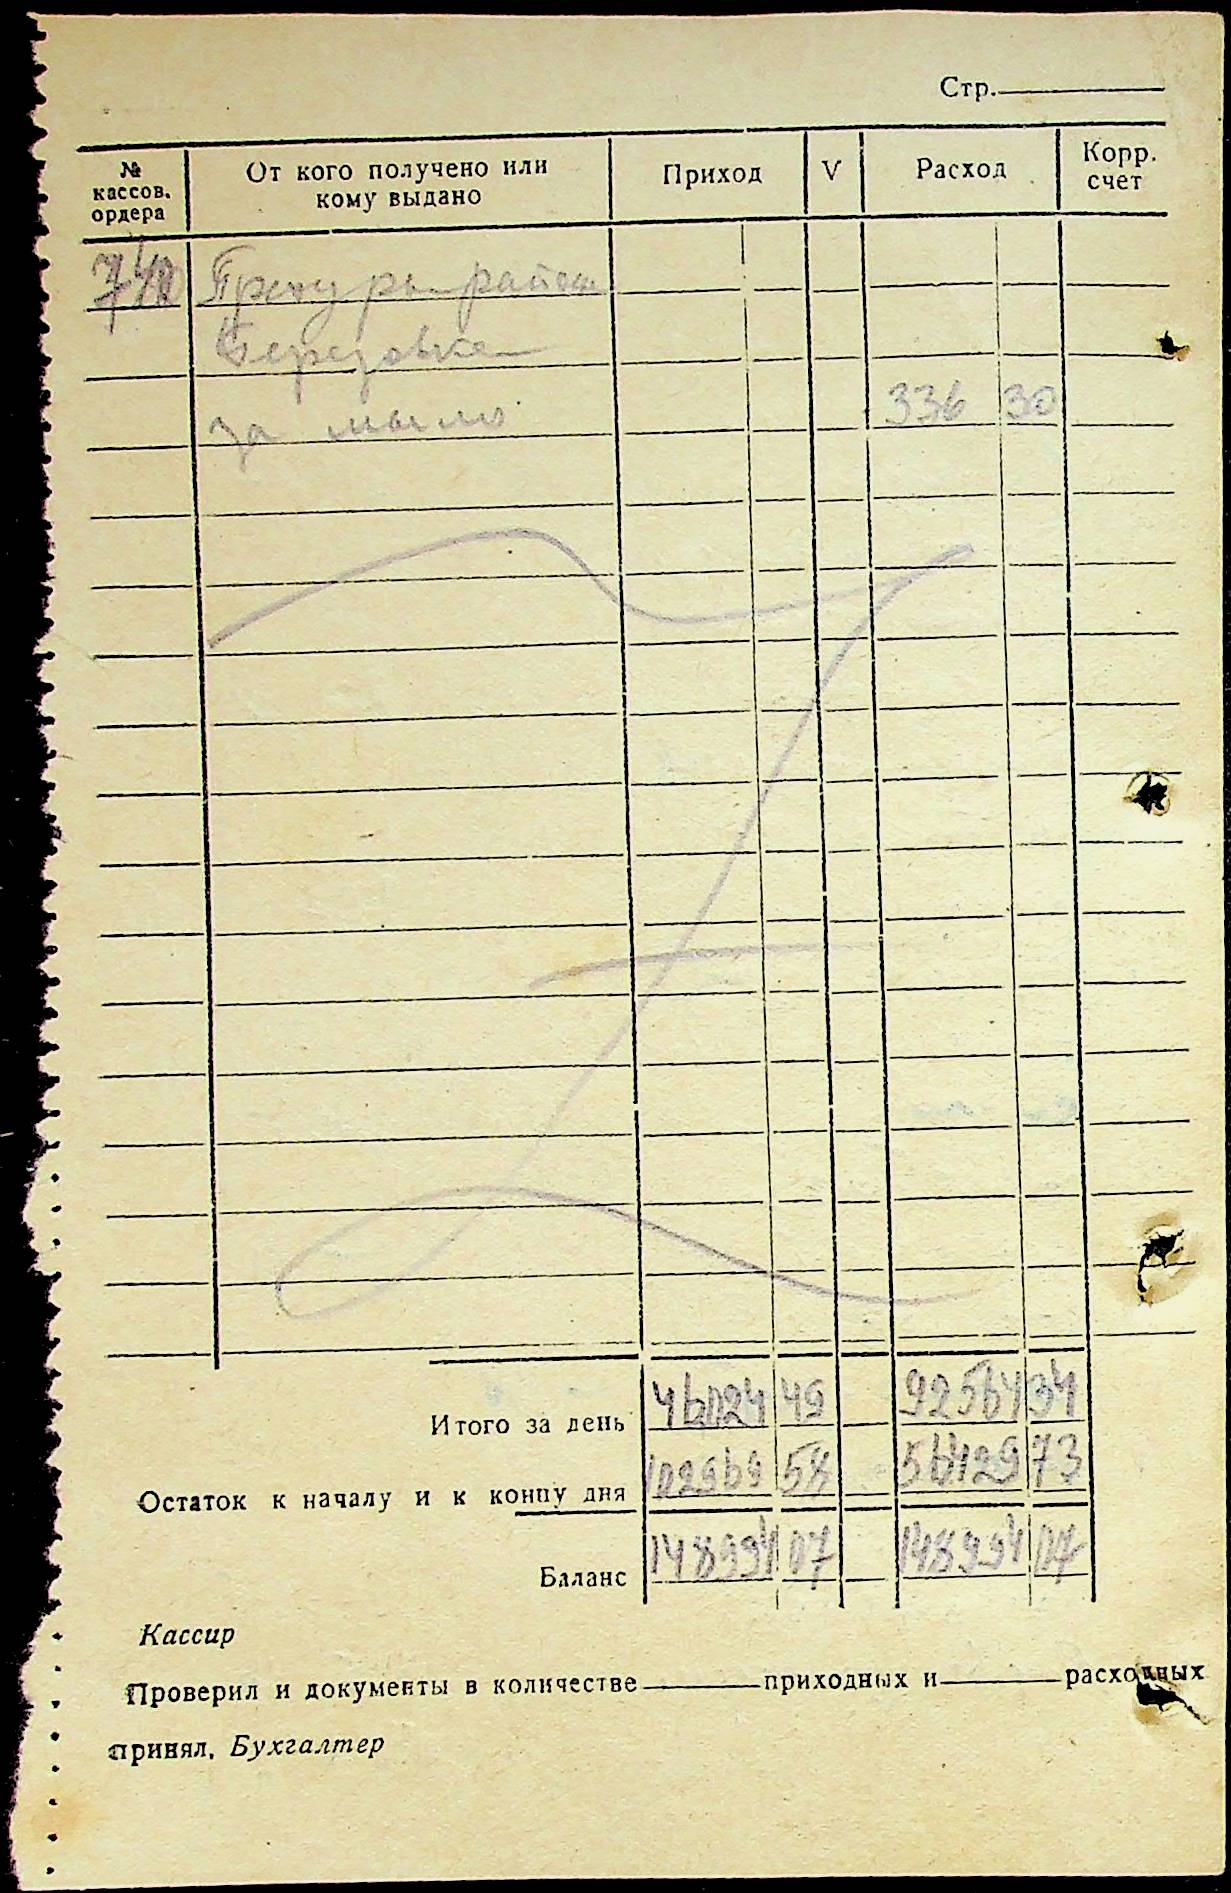 Стр.
№ кассов. ордера
От кого получено или кому выдано
Приход
V
Расход
Корр. счет
за мыло 336 30
Итого за день 46024 49 92564 34
Остаток к началу и к концу дня 102969 58 56429 73
Баланс 148994 07 148994 07
Кассир
Проверил и документы в количестве приходных и расходных
принял. Бухгалтер